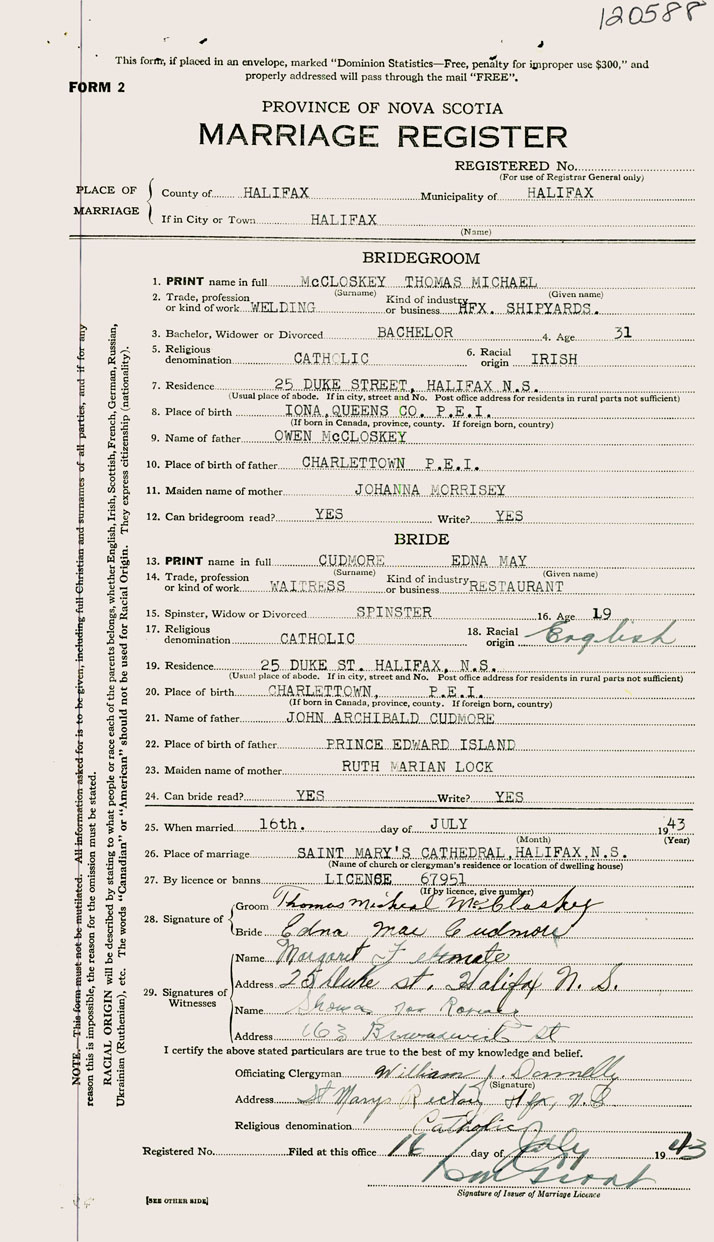 120588
This form, if placed in an envelope, marked "Dominion Statistics—Free, penalty for improper use $300," and
properly addressed will pass through the mail "FREE".
FORM 2
PROVINCE OF NOVA SCOTIA
MARRIAGE REGISTER
REGISTERED No.
(For use of Registrar General only)
PLACE OF MARRIAGE
County of HALIFAX Municipality of HALIFAX
If in City or Town HALIFAX
(Name)
BRIDEGROOM
1. PRINT name in full McCLOSKEY THOMAS MICHAEL
(Surname) (Given name)
2. Trade, profession or kind of work WELDING Kind of industry or business HFX. SHIPYARDS.
3. Bachelor, Widower or Divorced BACHELOR 4. Age 31
5. Religious denomination CATHOLIC 6. Racial origin IRISH
7. Residence 25 DUKE STREET, HALIFAX N.S.
(Usual place of abode. If in city, street and No. Post office address for residents in rural parts not sufficient)
8. Place of birth IONA, QUEENS CO. P.E.I.
(If born in Canada, province, county. If foreign born, country)
9. Name of father OWEN McCLOSKEY
10. Place of birth of father CHARLETTOWN P.E.I.
11. Maiden name of mother JOHANNA MORRISEY
12. Can bridegroom read? YES Write? YES
BRIDE
13. PRINT name in full CUDMORE EDNA MAY
(Surname) (Given name)
14. Trade, profession or kind of work WAITRESS Kind of industry or business RESTAURANT
15. Spinster, Widow or Divorced SPINSTER 16. Age 19
17. Religious denomination CATHOLIC 18. Racial origin English
19. Residence 25 DUKE ST. HALIFAX, N.S.
(Usual place of abode. If in city, street and No. Post office address for residents in rural parts not sufficient)
20. Place of birth CHARLETTOWN, P.E.I.
(If born in Canada, province, county. If foreign born, country)
21. Name of father JOHN ARCHIBALD CUDMORE
22. Place of birth of father PRINCE EDWARD ISLAND
23. Maiden name of mother RUTH MARIAN LOCK
24. Can bride read? YES Write? YES
25. When married 16th. day of JULY 1943
(Month) (Year)
26. Place of marriage SAINT MARY'S CATHEDRAL, HALIFAX, N.S.
(Name of church or clergyman's residence or location of dwelling house)
27. By licence or banns LICENSE 67951
(If by licence, give number)
28. Signature of
Groom Thomas Micheal McCloskey
Bride Edna Mae Cudmore
29. Signatures of Witnesses
Name Margaret
Address 25 Duke st. Halifax N.S.
Name
Address 163 Brunswick St
I certify the above stated particulars are true to the best of my knowledge and belief.
Officiating Clergyman William J. Donnelly
(Signature)
Address St Marys Rectory Hfx, N.S
Religious denomination Catholic
Registered No. Filed at this office 16 day of July 1943
Signature of Issuer of Marriage Licence
[SEE OTHER SIDE]
NOTE.—This form must not be mutilated. All information asked for is to be given, including full Christian and surnames of all parties, and if for any
reason this is impossible, the reason for the omission must be stated.
RACIAL ORIGIN will be described by stating to what people or race each of the parents belongs, whether English, Irish, Scottish, French, German, Russian,
Ukrainian (Ruthenian), etc. The words "Canadian" or "American" should not be used for Racial Origin. They express citizenship (nationality).